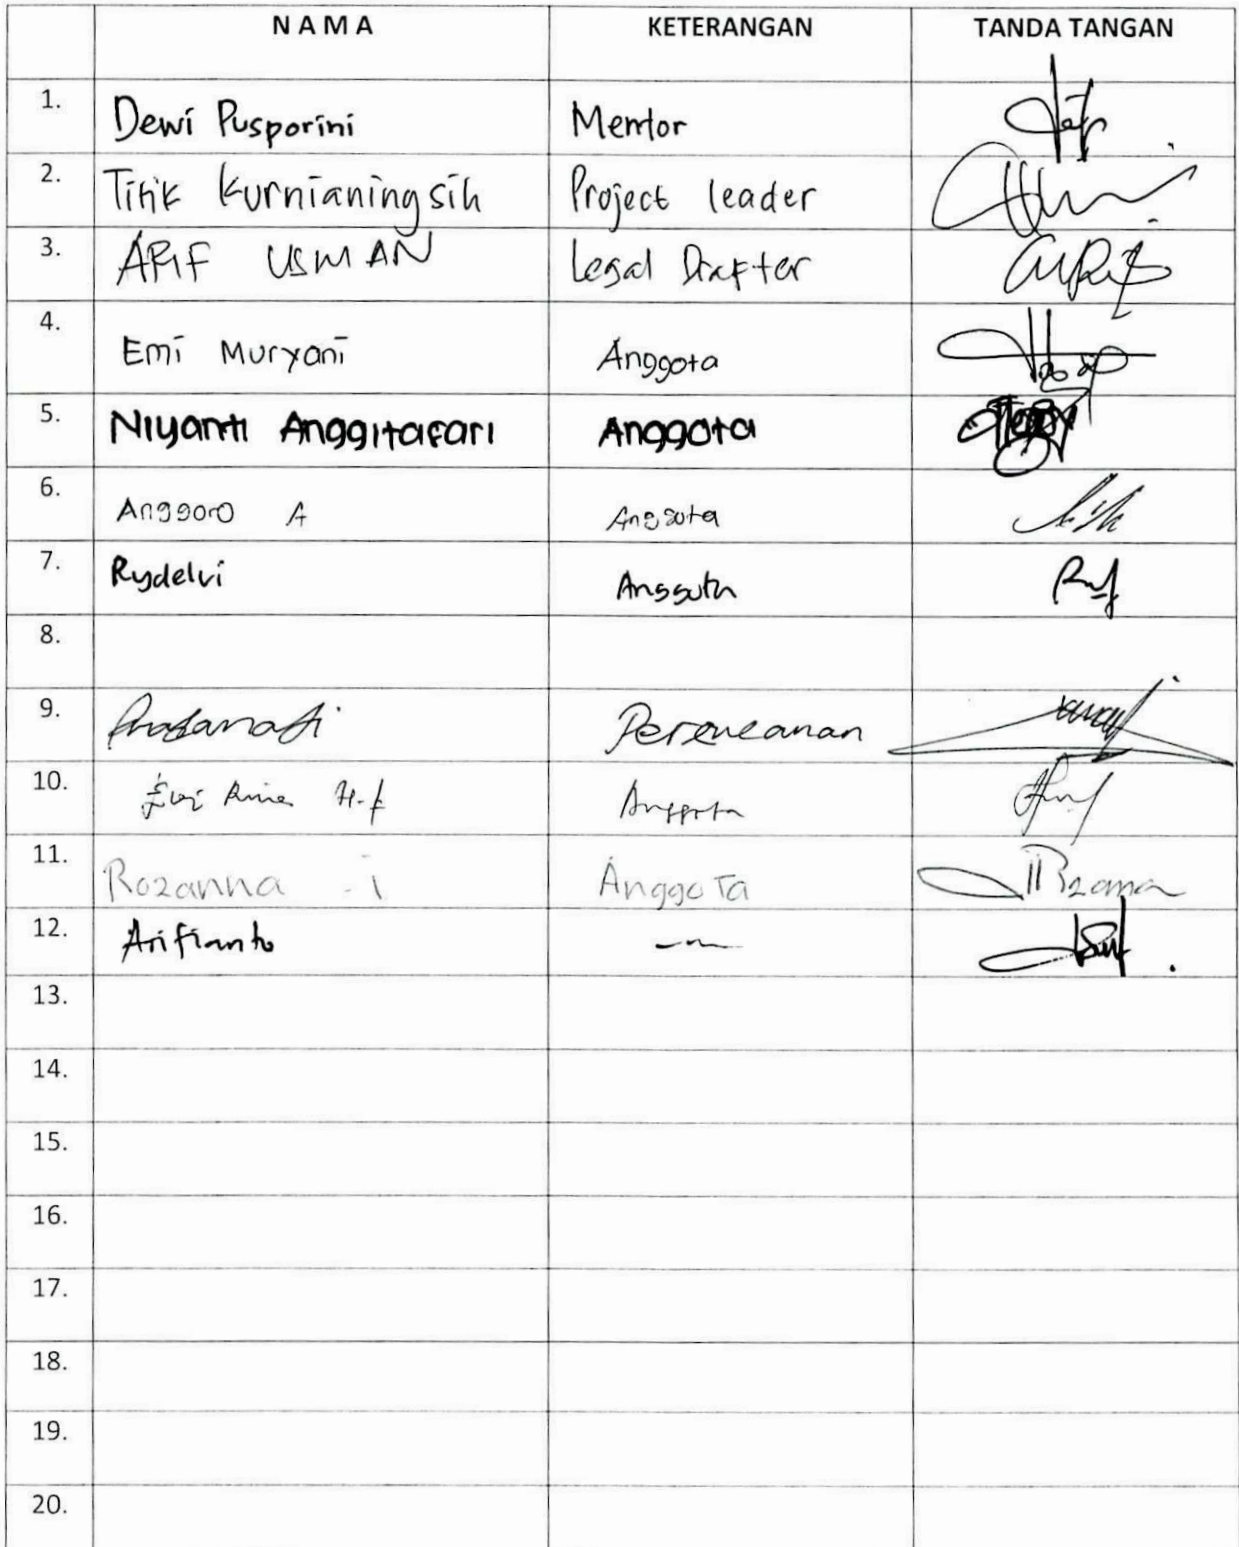 NAMA KETERANGAN TANDA TANGAN
1. Dewi Pusporini Mentor
2. Titik Kurnianingsih Project leader
3. ARIF USMAN Legal Drafter
4. Emi Muryani Anggota
5. Niyanti Anggitasari Anggota
6. Anggoro A Anggota
7. Rydelvi Anggota
8.
9. Perencanan
10. Anggota
11. Rozanna - i Anggota
12. Arifianto
13.
14.
15.
16.
17.
18.
19.
20.